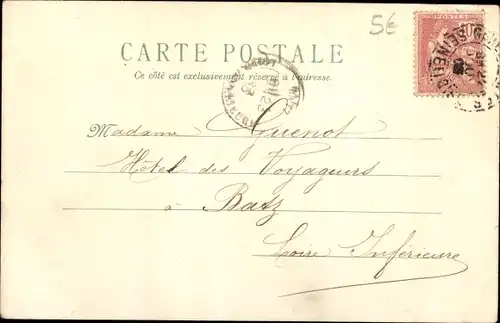 56
CARTE POSTALE
Ce côté est exclusivement réservé à l'adresse.
Madame Guenot
Hôtel des Voyageurs
à Batz
Loire Inférieure